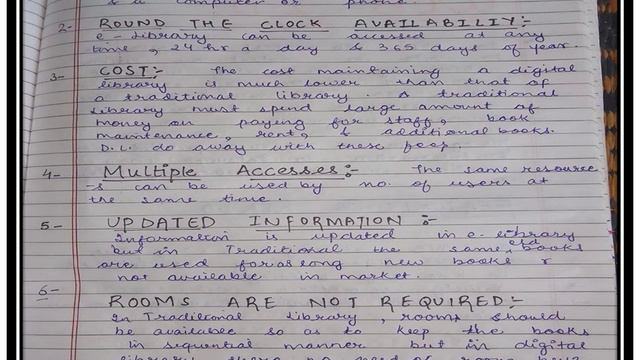 is a computer or phone.
2- ROUND THE CLOCK AVAILABILITY:-
e-Library can be accessed at any
time, 24 hr a day & 365 days of year.
3- COST:- The cost maintaining a digital
library is much lower than that of
a traditional library. A traditional
library must spend large amount of
money on paying for staff, book
maintenance, rent, & additional books.
D.L. do away with these feep.
4- Multiple Accesses:- The same resource
-s can be used by no. of users at
the same time.
5- UPDATED INFORMATION :-
Information is updated in e-library
but in Traditional the same old books
are used for as long new books r
not available in market.
6- ROOMS ARE NOT REQUIRED:-
In Traditional Library, rooms should
be available so as to keep the books
in sequential manner but in digital
library there no need of rooms